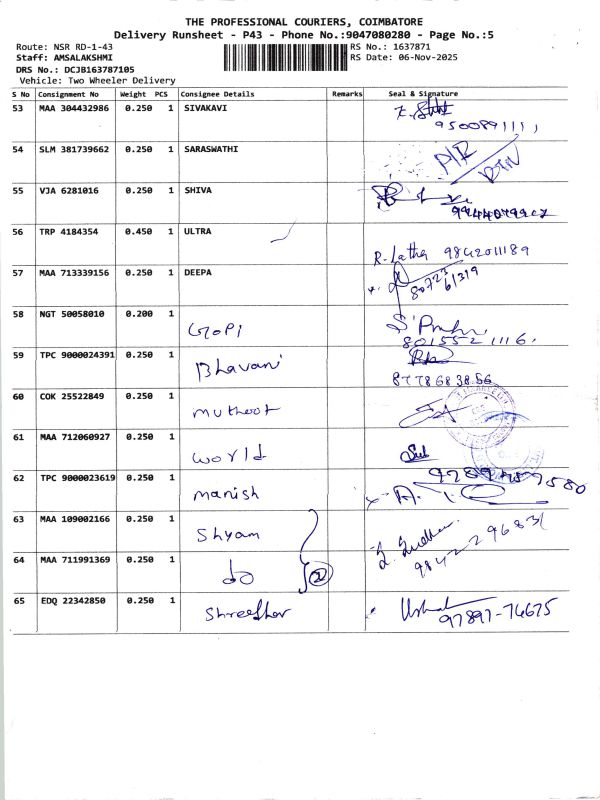 THE PROFESSIONAL COURIERS, COIMBATORE
Delivery Runsheet - P43 - Phone No.:9047080280 - Page No.:5
Route: NSR RD-1-43 RS No.: 1637871
Staff: AMSALAKSHMI RS Date: 06-Nov-2025
DRS No.: DCJB163787105
Vehicle: Two Wheeler Delivery
S No Consignment No Weight PCS Consignee Details Remarks Seal & Signature
53 MAA 304432986 0.250 1 SIVAKAVI
9500891111
54 SLM 381739662 0.250 1 SARASWATHI
P/R
RTN
55 VJA 6281016 0.250 1 SHIVA
56 TRP 4184354 0.450 1 ULTRA
R. Latha 9842011189
57 MAA 713339156 0.250 1 DEEPA
80723
61319
58 NGT 50058010 0.200 1 GOPI
8015521116
59 TPC 9000024391 0.250 1 Bhavani
8778683856
60 COK 25522849 0.250 1 muthoot
61 MAA 712060927 0.250 1 world
62 TPC 9000023619 0.250 1 manish
63 MAA 109002166 0.250 1 Shyam
98422 96831
64 MAA 711991369 0.250 1 do
2
65 EDQ 22342850 0.250 1
97897-76675